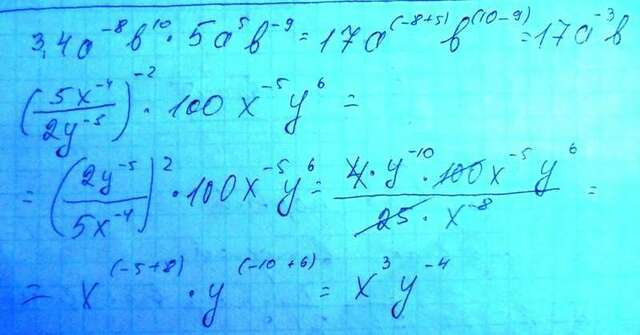 3,4a⁻⁸b¹⁰ · 5a⁵b⁻⁹ = 17a⁽⁻⁸⁺⁵⁾ b⁽¹⁰⁻⁹⁾ = 17a⁻³b
(5x⁻⁴/2y⁻⁵)⁻² · 100x⁻⁵y⁶ =
= (2y⁻⁵/5x⁻⁴)² · 100x⁻⁵y⁶ = 4·y⁻¹⁰·100x⁻⁵y⁶/25·x⁻⁸ =
= x⁽⁻⁵⁺⁸⁾ · y⁽⁻¹⁰⁺⁶⁾ = x³y⁻⁴